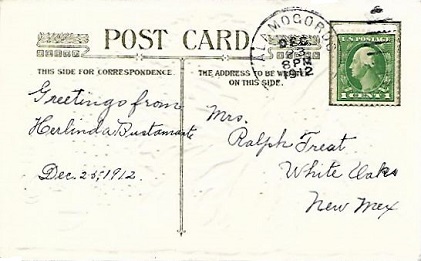 POST CARD.
THIS SIDE FOR CORRESPONDENCE.
THE ADDRESS TO BE
ON THIS SIDE.
ALAMOGORDO
DEC
3
8 PM
1912
U.S. POSTAGE
1 CENT 1
Greetings from
Herlinda Bustamante
Dec. 25, 1912.
Mrs.
Ralph Treat
White Oaks
New Mex